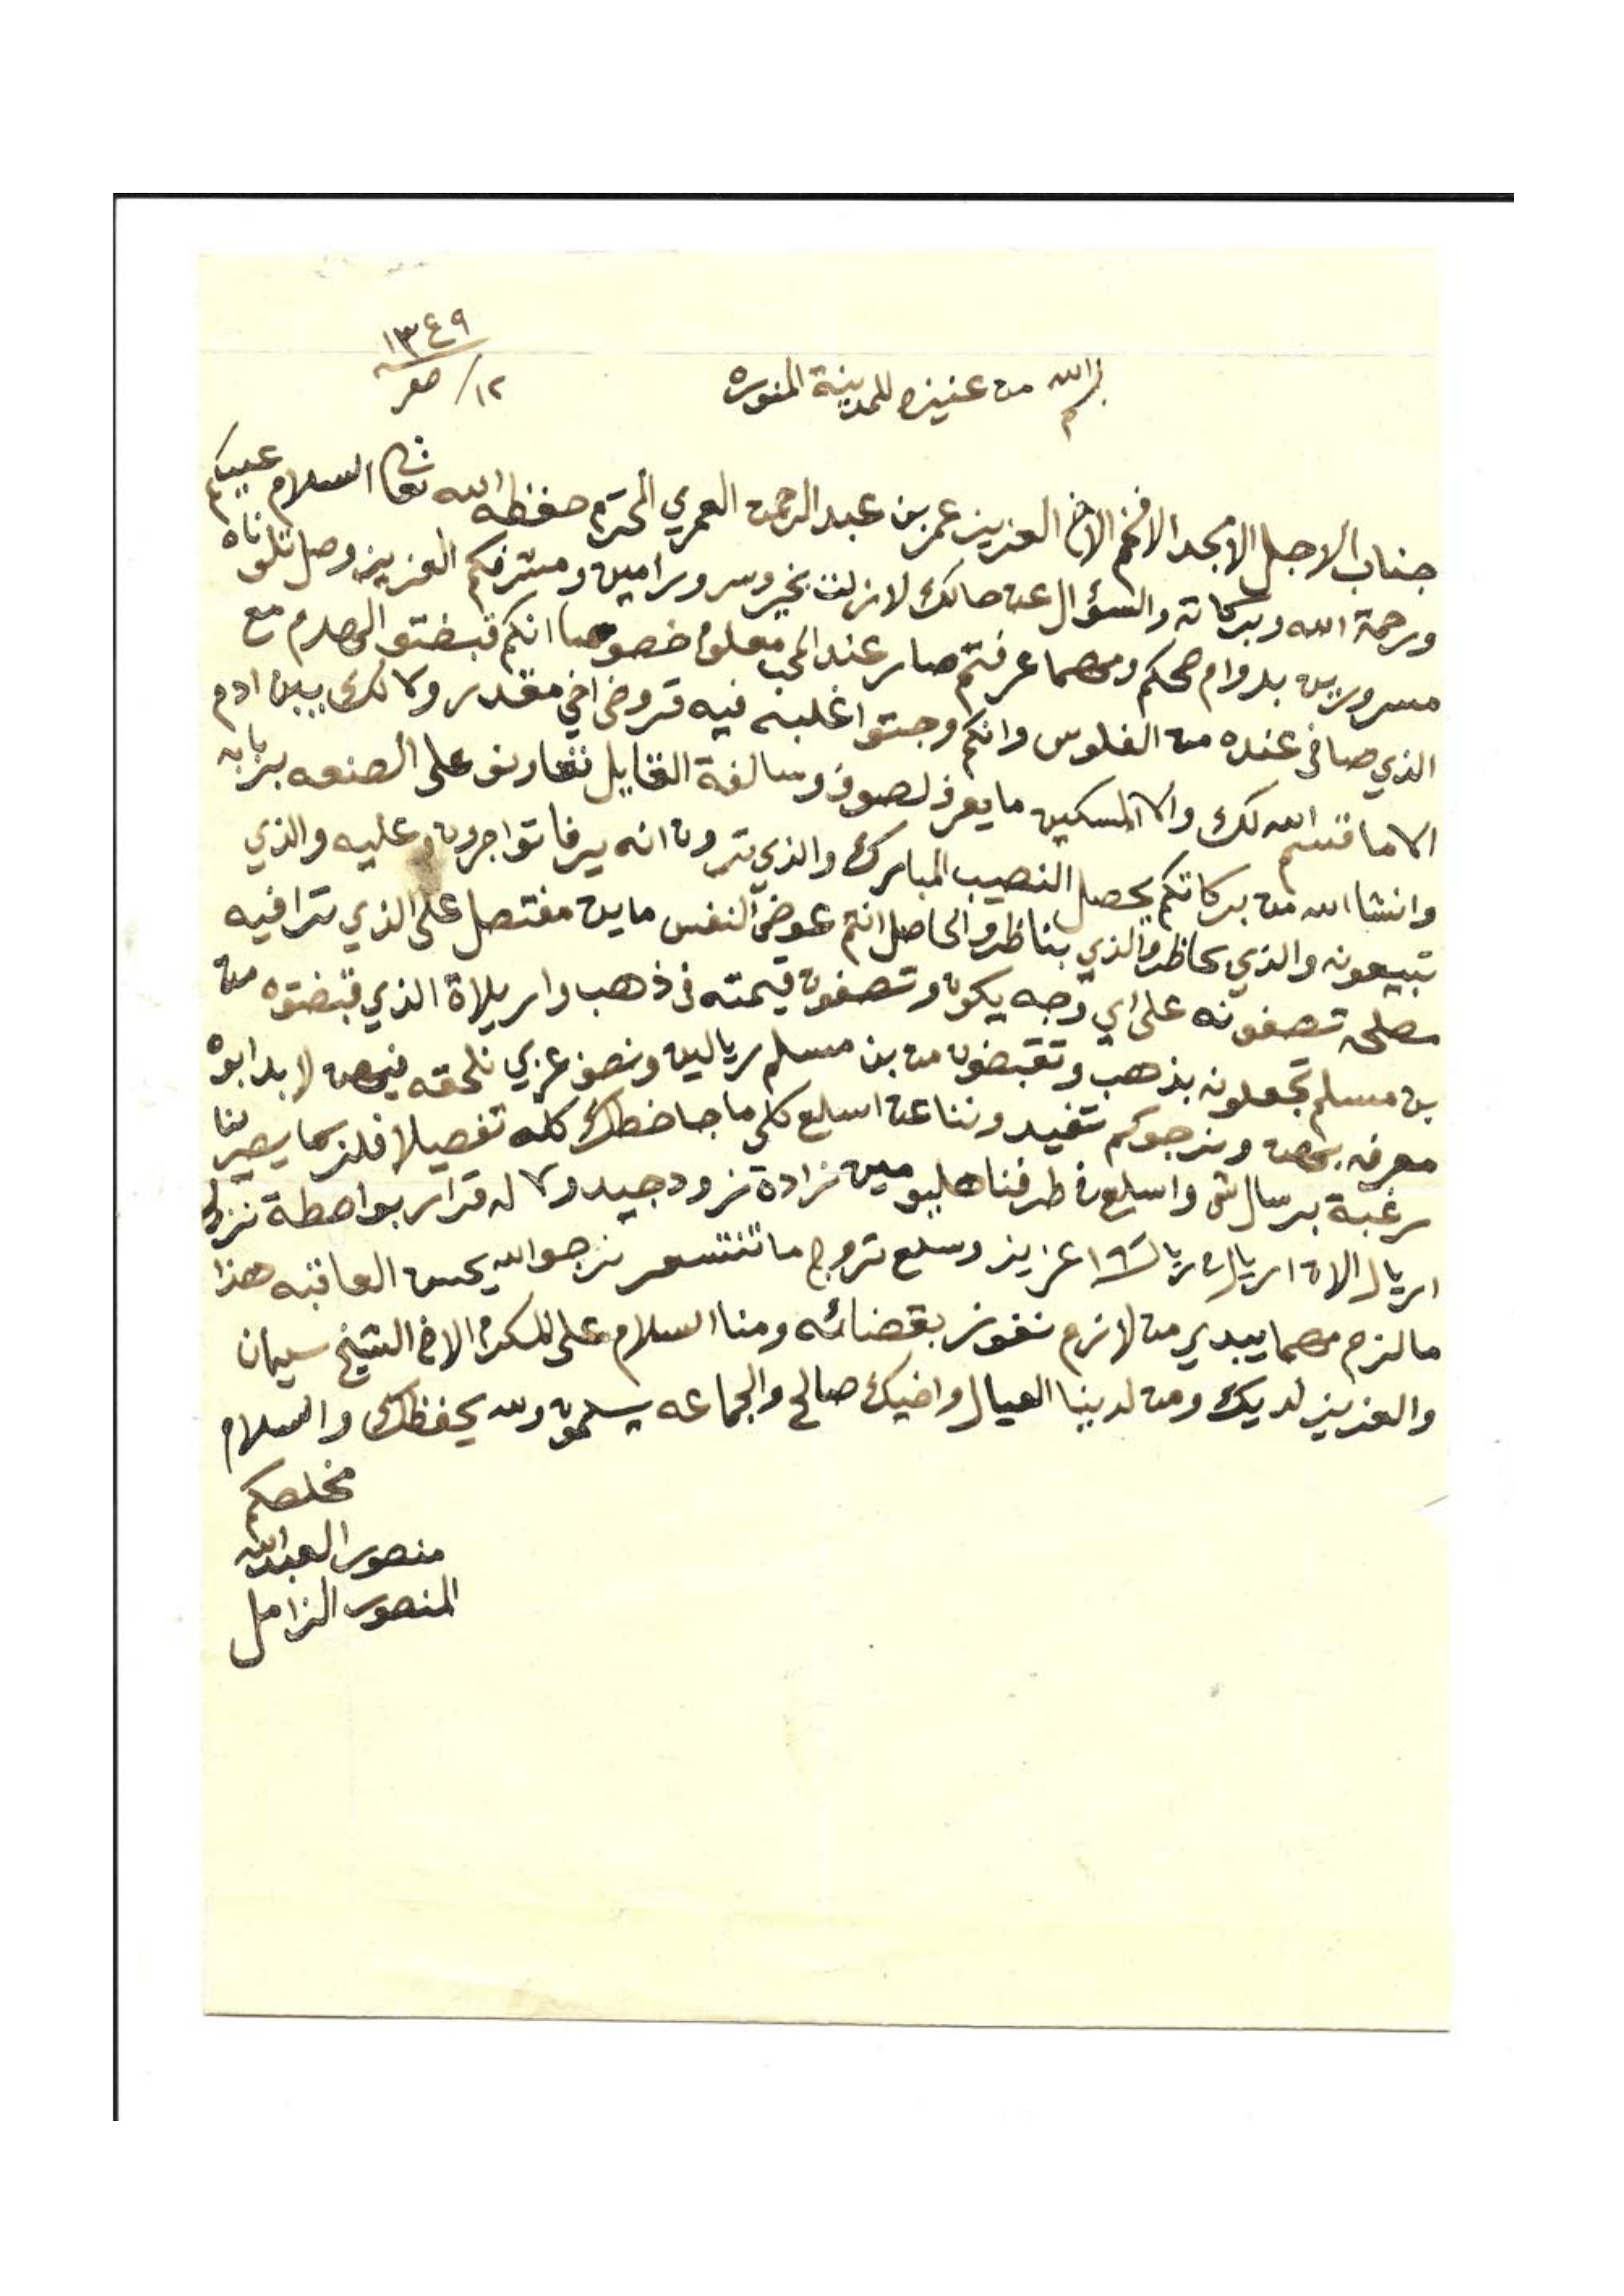 ١٣٤٩
١٢/ صفر
بسم الله من عنيزه للمدينة المنوره
جناب الاجل الامجد الافخم الاخ العزيز عمر بن عبد الرحمن العمري المحترم حفظه الله تعالى السلام عليكم
ورحمة الله وبركاته والسؤال عن حالك لازلت بخير وسرور امين ومشرفكم العزيز وصل تلوناه
مسرورين بدوام صحكم ومهما عرفتم صار عند المحب معلوم خصوصا انكم قبضتو الهدم مع
الذي صافى عنده من الفلوس وانكم وجتوا اغلبه فيه قروض اخي مقدر ولا لك يبن ادم
الا ما قسم الله لك والا المسكين ما يعرف لصوف وسالفة القايل نتعارف على الصنعه بزبابه
وانشا الله من بركاتكم يحصل النصيب المبارك والذي ترون انه يرفا تواجرون عليه والذي
تبيعونه والذي بحاظر والذي بناظر والحاصل انتم عوض النفس ماين مفتصل على الذي ترا فيه
مصلحه تصفونه على اي وجه يكون وتصفون قيمته فى ذهب واريلاة الذي قبضتوه من
بن مسلم تجعلونه بذهب وتقبضون من بن مسلم ريالين ونصف عربي نلحقه لابد ابوه
معرفه ونرجوكم تفيدوننا عن اسلع كلى ما جا خطك كله تفصيلا فلزبما يصير لنا
رغبة برسال شي واسلع فى طرفنا هليومين زادة تزود جيد ولا له قرار بواصطة نزول
اريال الان اريال عزيز وسلع تروج ما تنتسعر نرجوا الله يحسن العاقبه هذا
مالزم مهما يبدي من لازم نفوز بقضائه ومنا السلام على المكرم الاخ الشيخ سليمان
والعزيز لديك ومن لدينا العيال واخيك صالح والجماعه يسلمون والله يحفظك والسلام
مخلصكم
منصور العبدالله
المنصور الزامل